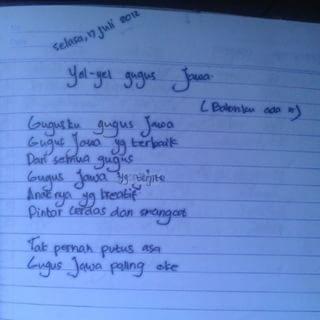 Selasa, 17 Juli 2012
Yel-yel gugus Jawa
(Balonku ada 5)
Gugusku gugus Jawa
Gugus Jawa yg terbaik
Dari semua gugus
Gugus Jawa yg
Anaknya yg kreatif
Pintar Cerdas dan smangat
Tak pernah putus asa
Gugus Jawa paling oke